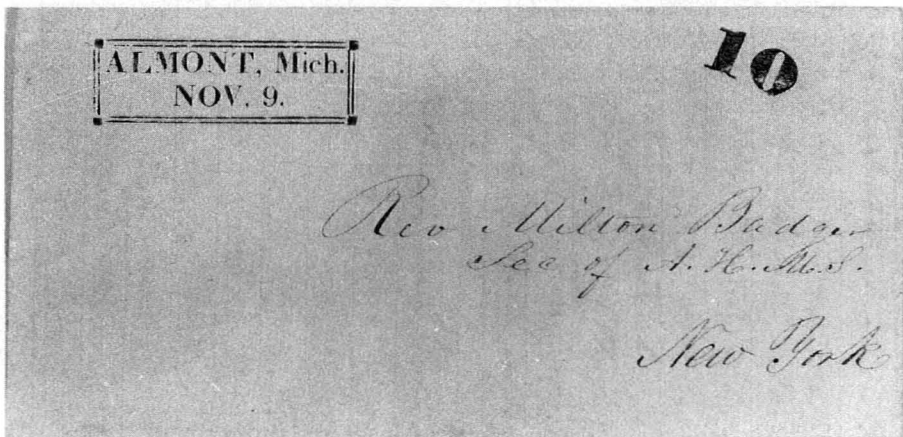 ALMONT, Mich.
NOV. 9.
10
Rev Milton Badger
Sec of A. H. M. S.
New York